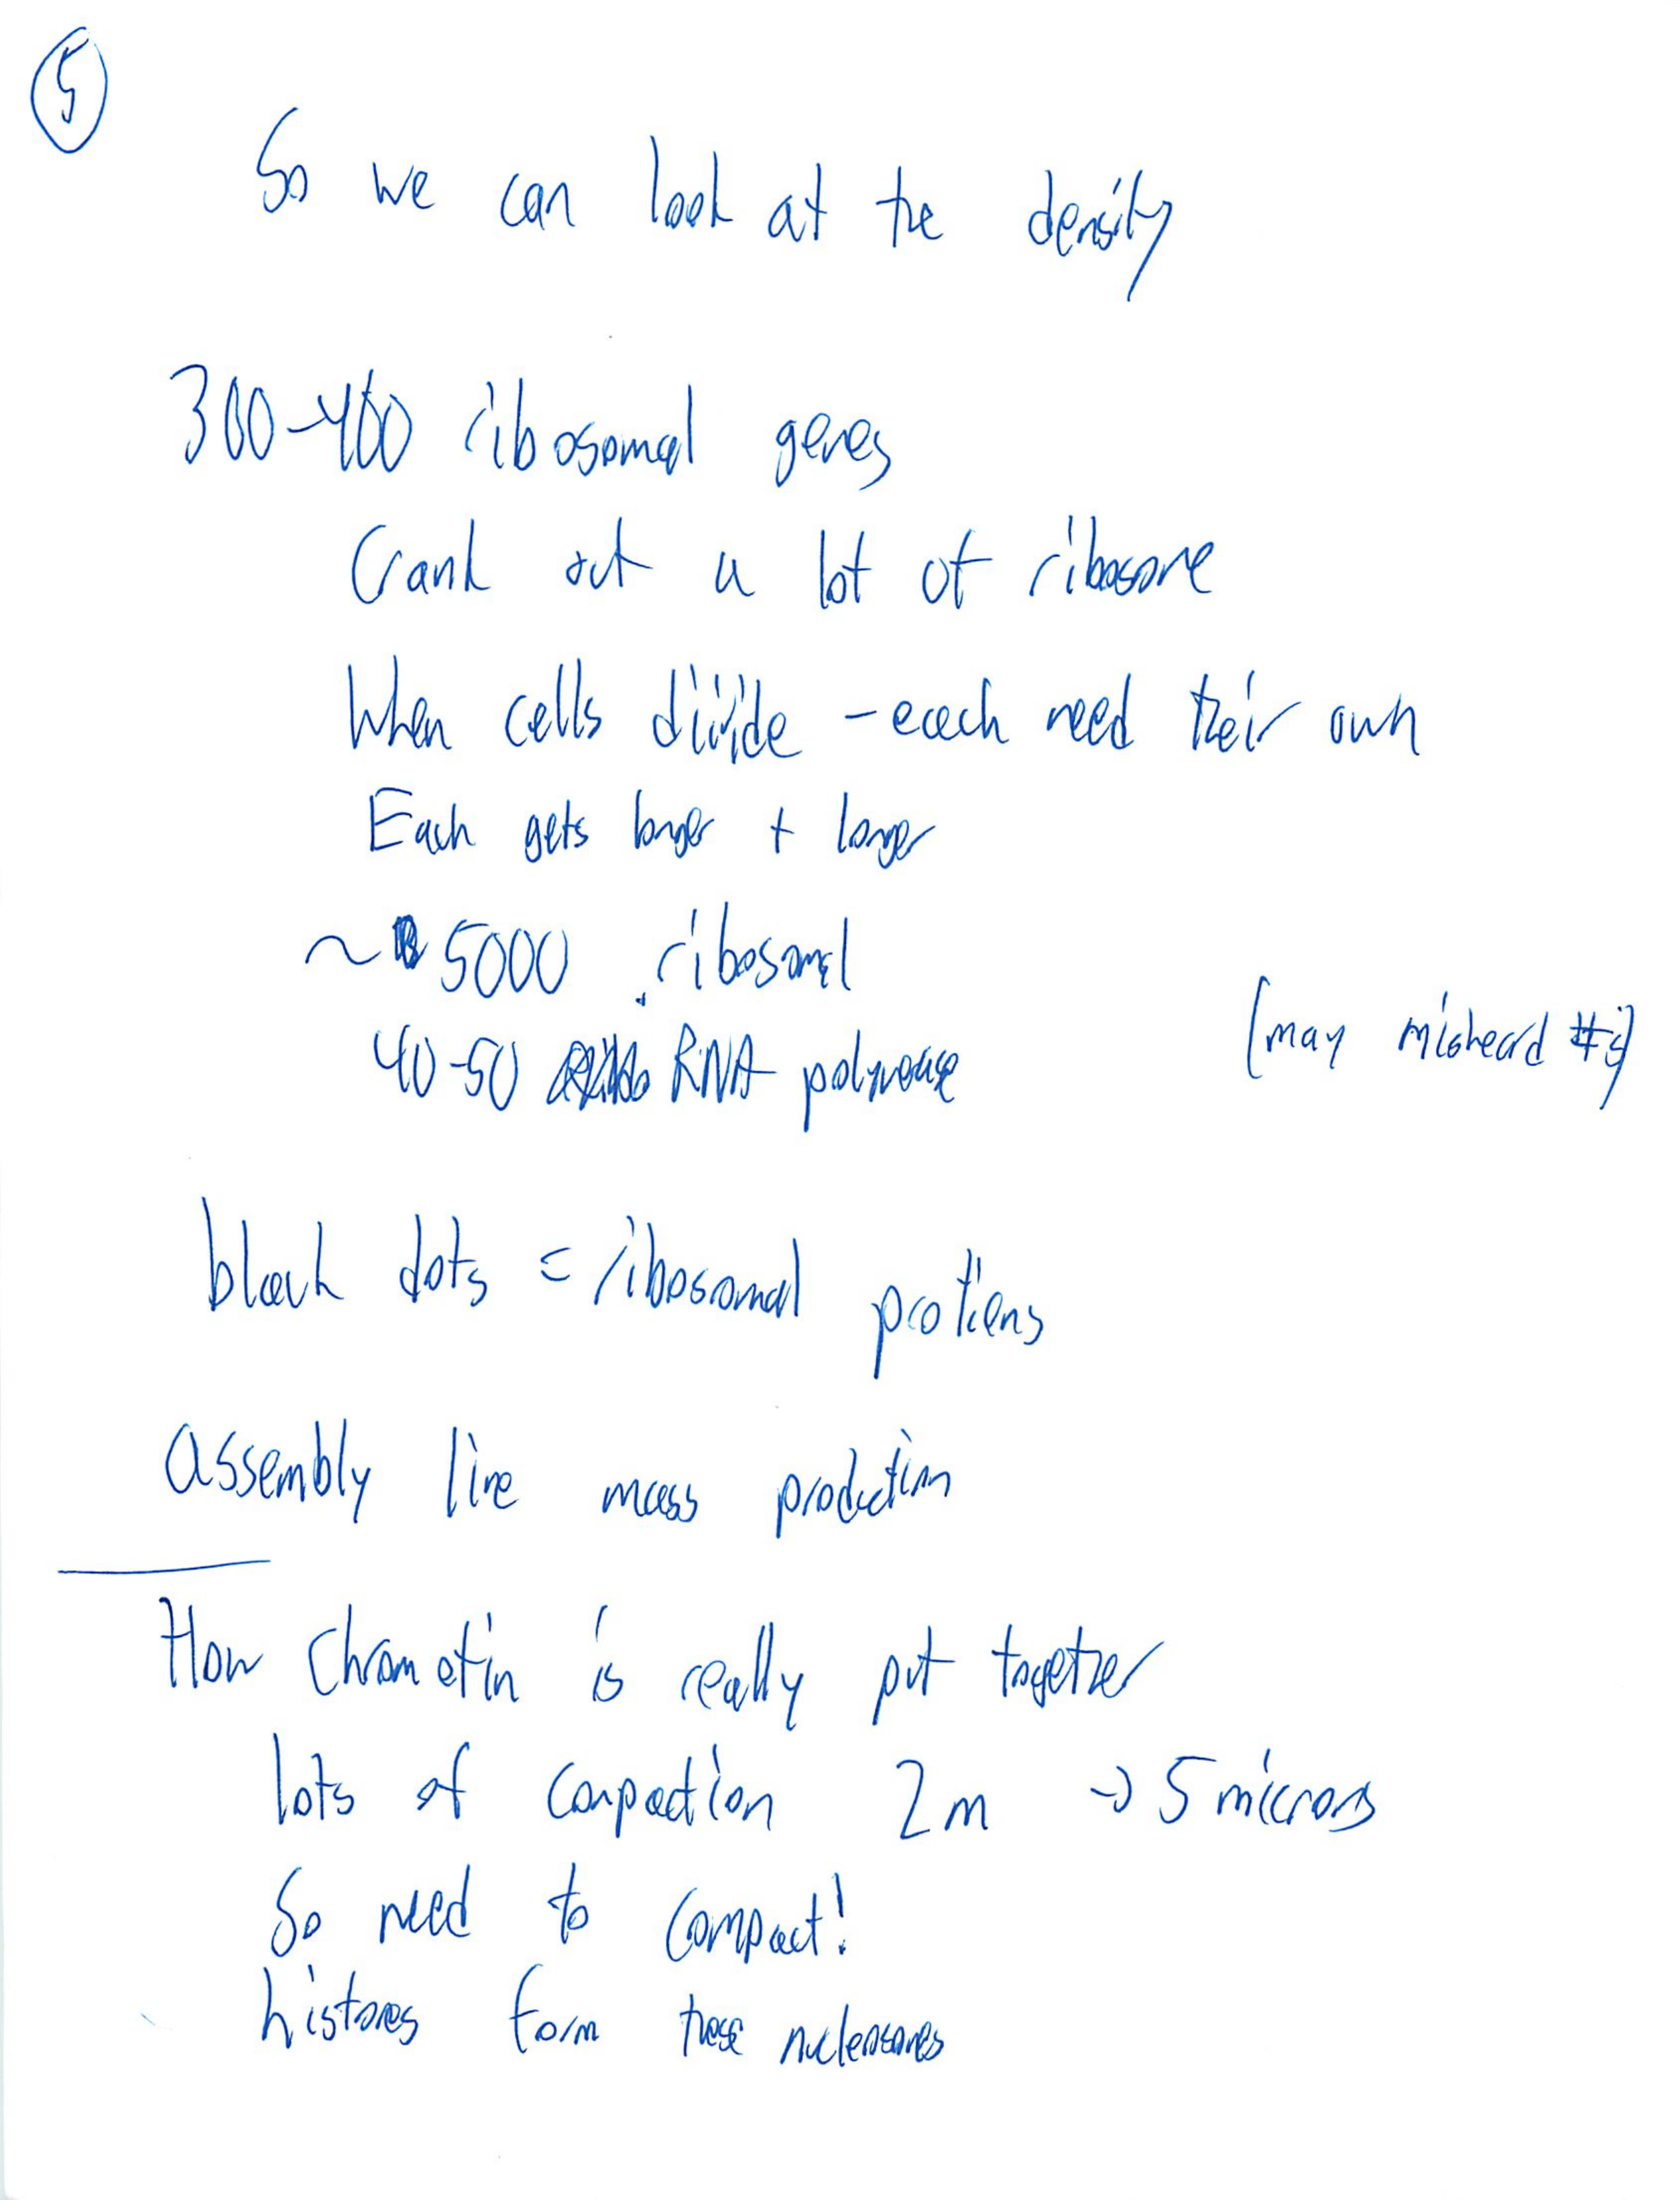 5
So we can look at the density
300-400 ribosomal genes
Crank out a lot of ribosome
When cells divide - each need their own
Each gets longer + longer
~ 5000 ribosomal
40-50 RNA polymerase
[may misheard #s]
black dots = ribosomal protiens
assembly line mass production
How chromatin is really put together
lots of compaction 2m → 5 microns
So need to compact!
histones form these nucleosomes